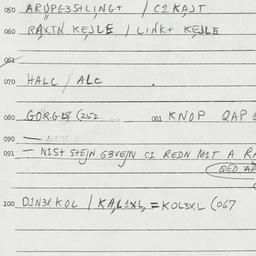 050 ARUPE3S+LING+ / C1 KAJT
060 RAKTN KEJLE / LINK+ KEJLE
061
070 HALC / ALC
080 GORGLS (252 081 KNOP QAP
090
091 — N1S+ S+EJN G3VEJN C1 REDN M1T A
100 D1N3R KOL / KA,L1XL, = KOL3XL (067